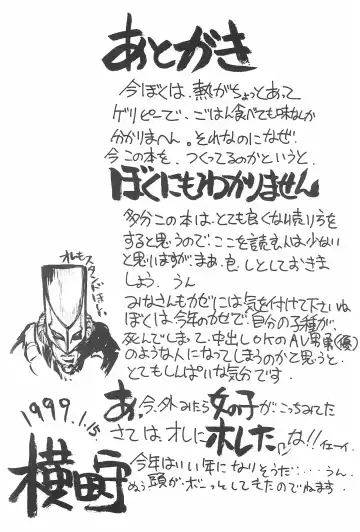 あとがき
今ぼくは、熱がちょっとあって
ゲリピーで、ごはん食べても味なんか
分かりまへん。それなのになぜ
今この本を、つくってるのかというと、
ぼくにもわかりません
多分この本は、とても良くない売り方を
すると思うので、ここを読む人は少ない
と思いますが、まぁ、良しとしておきま
しょう、うん
みなさんもカゼには気を付けて下さいね
ぼくは、今年のカゼで、自分の子種が
死んでしまって、中出しOKのAV男優(優)
のような人になってしまうのかと思うと、
とてもしんぱいな気分です。
あ、今、外みたら女の子がこっちみてた
さては、オレにホレたな!!イェーイ
今年はいい年になりそうだ……うん。
頭がボーっとしてもたのでねます。
オレもスタンドほしい
1999.1.15.
横田守